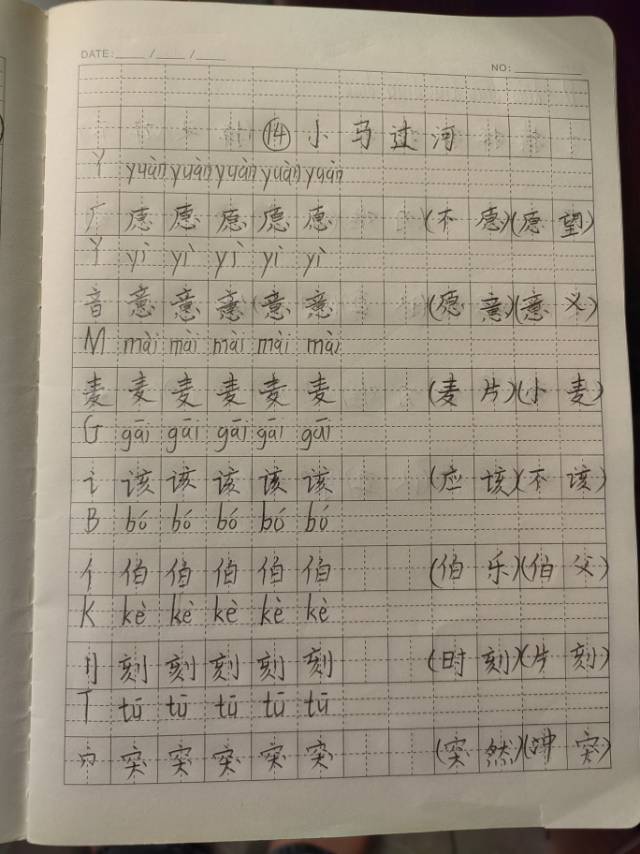 DATE: / /
NO:
⑭小马过河
Y yuàn yuàn yuàn yuàn yuàn
厂 愿 愿 愿 愿 愿 (不愿)(愿望)
Y yì yì yì yì yì
音 意 意 意 意 意 (愿意)(意义)
M mài mài mài mài mài
麦 麦 麦 麦 麦 麦 (麦片)(小麦)
G gāi gāi gāi gāi gāi
讠 该 该 该 该 该 (应该)(不该)
B bó bó bó bó bó
亻 伯 伯 伯 伯 伯 (伯乐)(伯父)
K kè kè kè kè kè
刂 刻 刻 刻 刻 刻 (时刻)(片刻)
T tū tū tū tū tū
穴 突 突 突 突 突 (突然)(冲突)